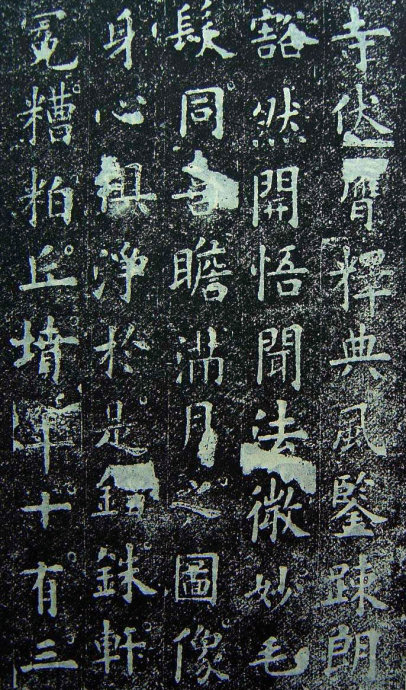 寺伏膺釋典風鑒踈朗
豁然開悟聞法微妙毛
髮同瞻滿月之圖像
身心俱淨於是錙銖軒
冕糟粕丘墳年十有三